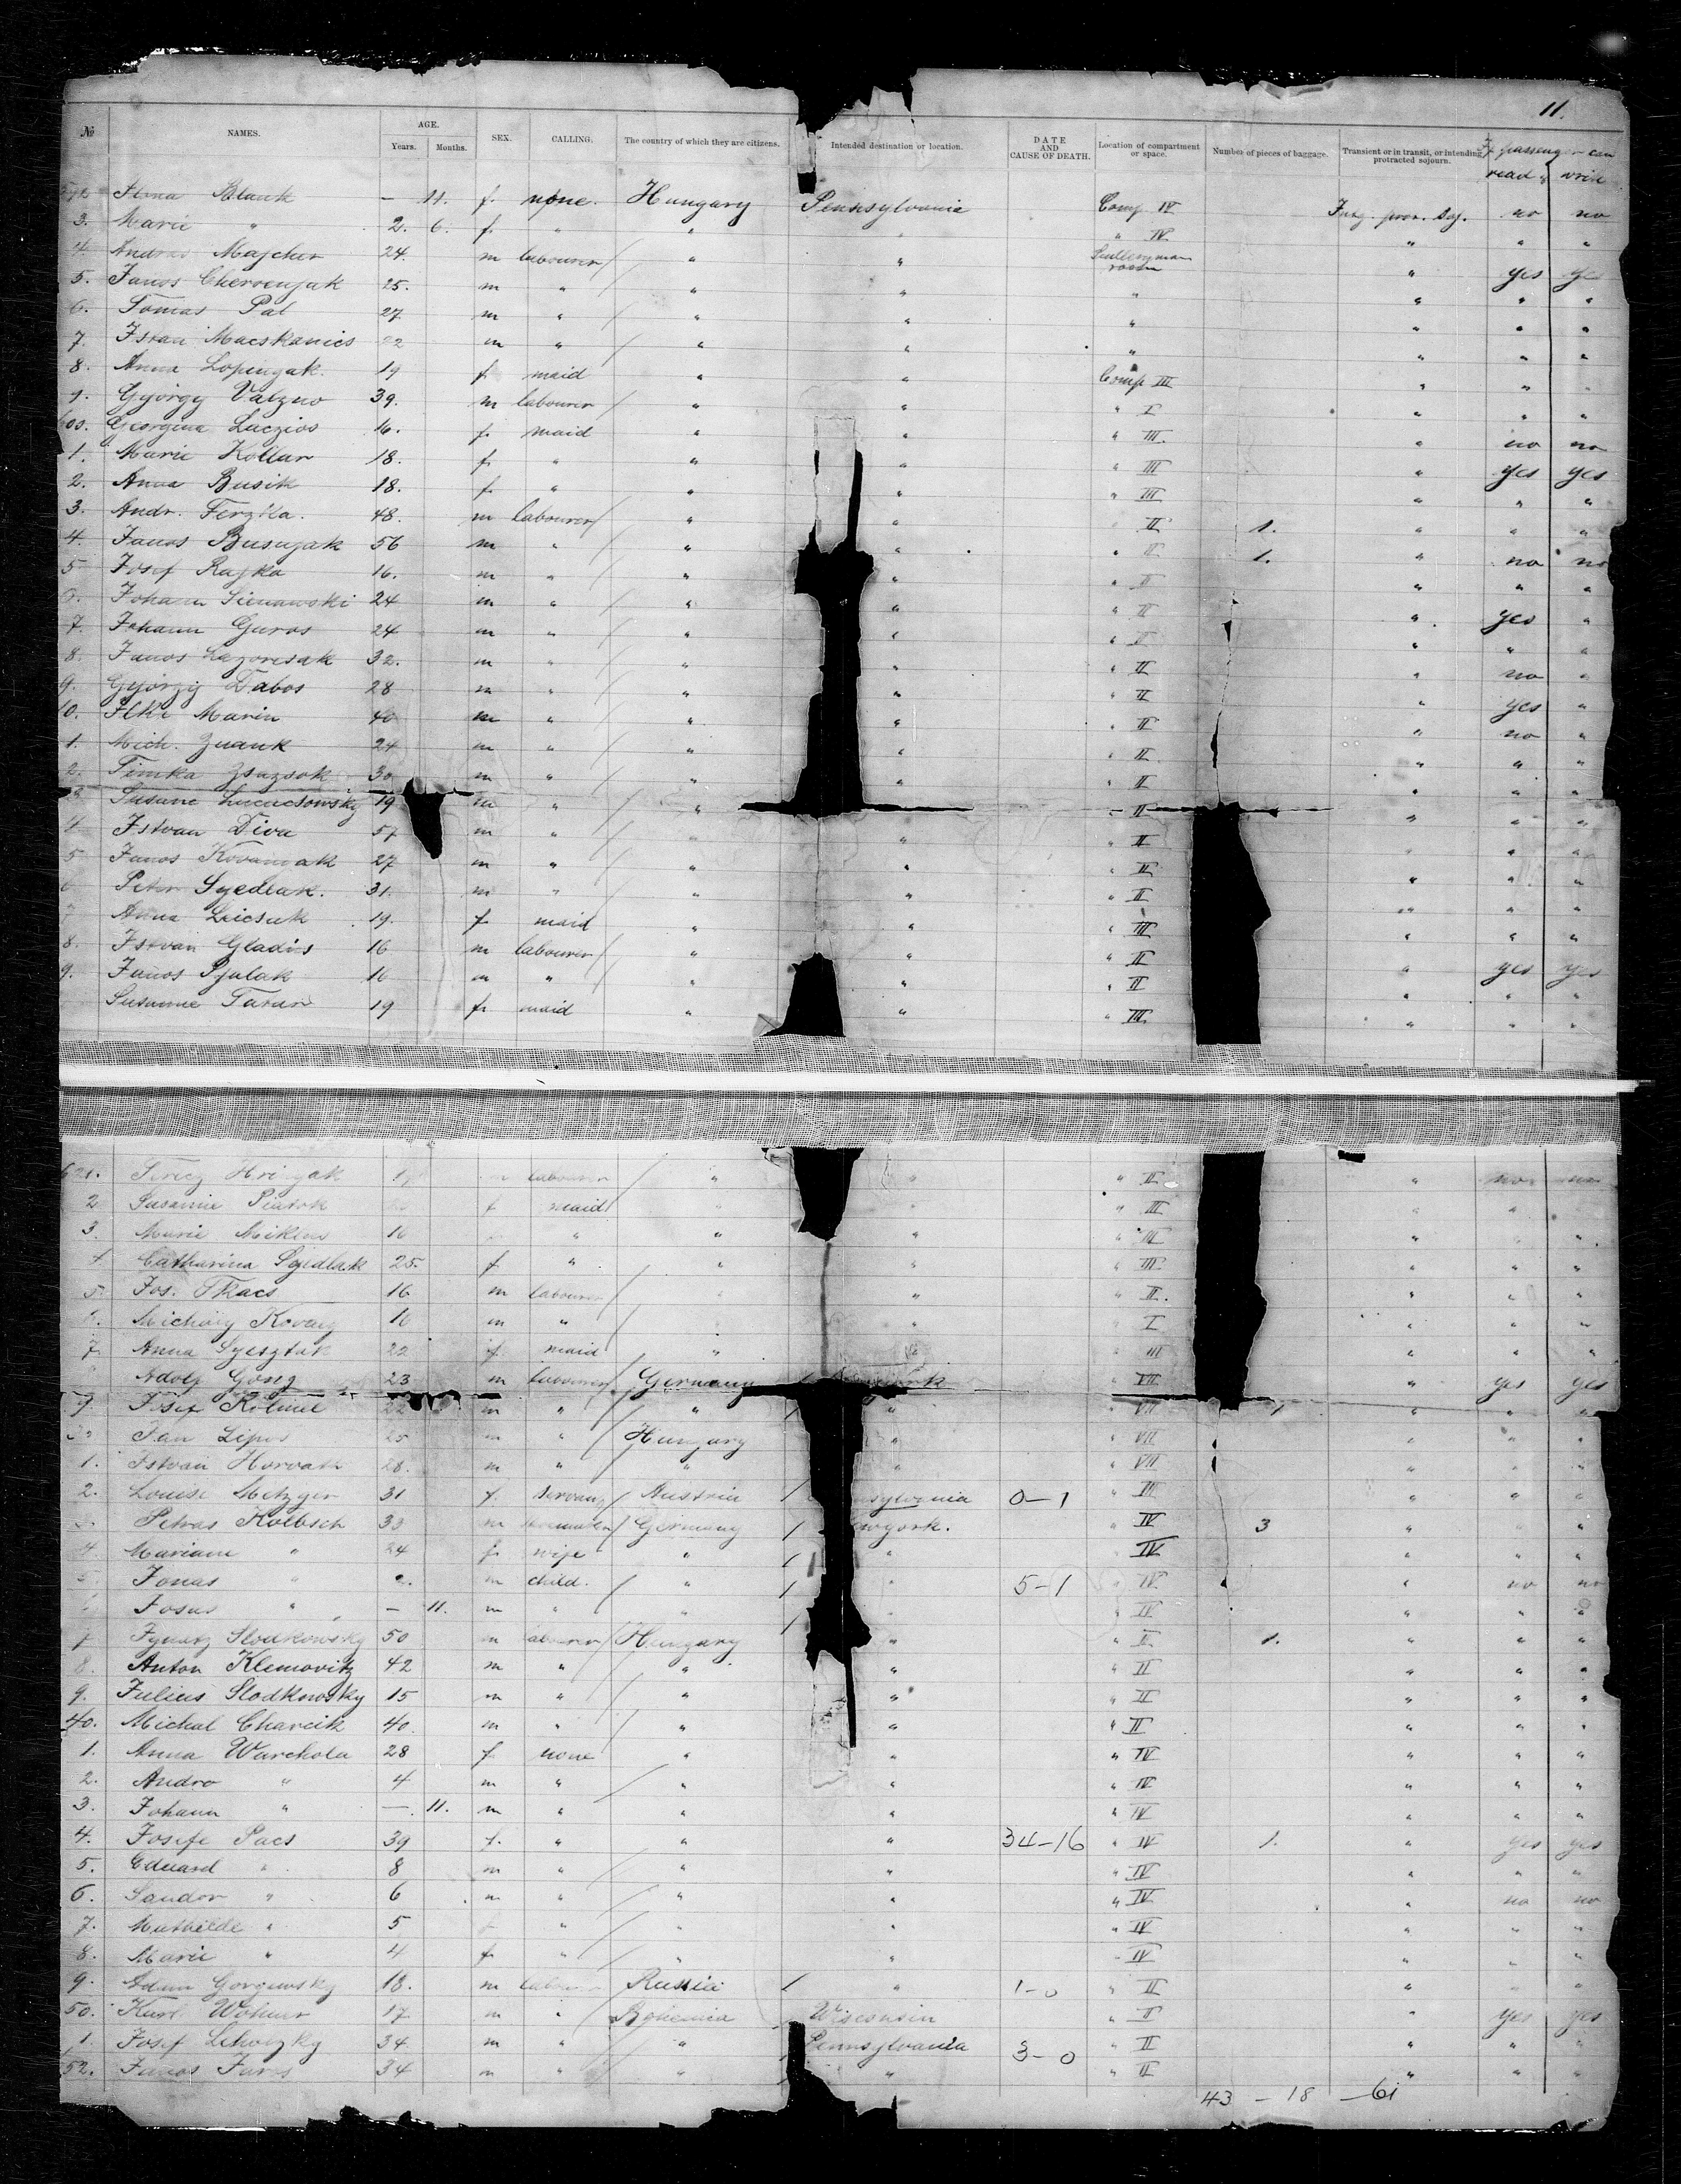 11.
№ NAMES. AGE. Years. Months. SEX. CALLING. The country of which they are citizens. Intended destination or location. DATE AND CAUSE OF DEATH. Location of compartment or space. Number of pieces of baggage. Transient or in transit, or intending protracted sojourn. If passenger can read & write
Blank — 11. f. none. Hungary Pennsylvania Comp. IV no no
3. Marie " 2. 6. f. " " " " IV " " "
4. Andras Majcher 24. m labourer " " room " yes yes
5. Janos Chervenjak 25. m " " " " " " "
6. Tomas Pal 27 m " " " " " " "
7. Istvan Macskanics 22 m " " " " " " "
8. Anna Lopenyak. 19 f. maid " " Comp III " "
9. György Valzuo 39. m labourer " " " I " " "
Georgina Luczios 16. f. maid " " " III. " no no
1. Marie Kollar 18. f. " " " " III " yes yes
2. Anna Busik 18. f. " " " " III " " "
3. Andr. Ferzka. 48. m labourer " " II 1. " " "
4. Janos Busnjak 56 m " " " " II 1. " no no
5 Josef Rajka 16. m " " " " II " " "
6. Johann Sienawski 24 m " " " " II " yes "
7. Johann Guros 24 m " " " " II " " "
8. Janos Lazoresak 32. m " " " " II " no "
9. György Dabos 28 m " " " " II " yes "
10. Ilke Marin 40 m " " " " II " no "
1. Mich. Zuank 24 m " " " " II " " "
2. Timka Zsuzsok 30 m " " " " II " " "
Susane Lucacsowsky 19 m " " " II " " "
4 Istvan Diva 57 m " " " " II " " "
5 Janos Kovamak 27 m " " " " II " " "
6 Peter Szedlak. 31. m " " " " II " " "
7 Anna Lucsuk 19. f. maid " " " III " " "
8. Istvan Gladis 16 m labourer " " " II " yes yes
9. Janos Pjalak 16 m " " " " II " " "
Susanne Tarar 19 f. maid " " " III " " "
621. labourer " " " II " no no
2 Susanne Piatok f maid " " III " "
3. Marie Miklus 16 " " " " III " " "
4 Catharina Szedlak 25. f " " " " III " " "
5 Jos. Tkacs 16 m labourer " " " II. " " "
Kovacs 16 m " " " I " " "
7 Anna Szesztak 22 f. maid " " III " " "
Adolf Gosig 23 m labourer Germany " VII " yes yes
9. Josef 22 m " " " " VII " " "
Jan Lipos 25 m " Hungary " " VII " " "
1. Istvan Horvath 28. m " " " " VII " " "
2. Louise Metzger 31 f. servant Austria 0—1 " III " " "
Petras Kolbsch 33 m Germany " IV 3 " " "
4 Mariane " 24 f. wife " " IV " " "
5 Jonas " 2. m child. " " 5—1 " IV " no no
Josus " — 11. m " " " IV " " "
7 Ignatz Slodkowsky 50 m labourer Hungary " " II 1. " " "
8. Anton Klemovitz 42 m " " " " II " " "
9. Julius Slodkowsky 15 m " " " " II " " "
40. Michal Charcik 40. m " " " " II " " "
1. Anna Warchola 28 f. none " " " IV " " "
2. Andro " 4 m " " " " IV " " "
3. Johann " — 11. m " " " " IV " " "
4. Josefe Pacs 39 f. " " " 34—16 " IV 1. " yes yes
5. Eduard " 8 m " " " " IV " " "
6. Sandor " 6 m " " " " IV " no no
7. Mathilde " 5 f " " " " IV " " "
8. Marie " 4 f. " " " " IV " " "
9. Adam Gorgewsky 18. m labourer Russia " 1—0 " II " " "
50. Karl Wohner 17 m " Bohemia Wisconsin " II " yes yes
1. Josef Lehoczky 34. m " " Pennsylvania 3—0 " II " " "
52. Janos Juros 34 m " " " II " " "
43 — 18 — 61